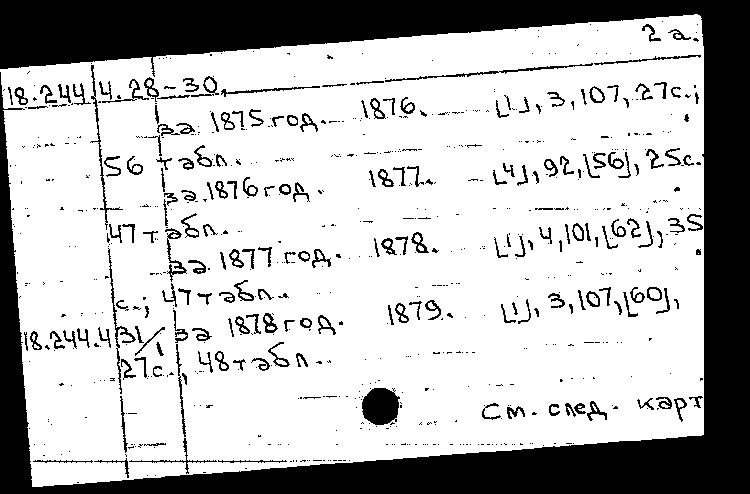 2 а.
18.244.4.28-30,
за 1875 год. 1876. [1], 3, 107, 27с.;
56 табл.
за 1876 год. 1877. [4], 92, [56], 25с.
47 табл.
за 1877 год. 1878. [1], 4, 101, [62], 35
с.; 47 табл.
18.244.4 31/1 за 1878 год. 1879. [1], 3, 107, [60],
27с., 48 табл.
См. след. карт